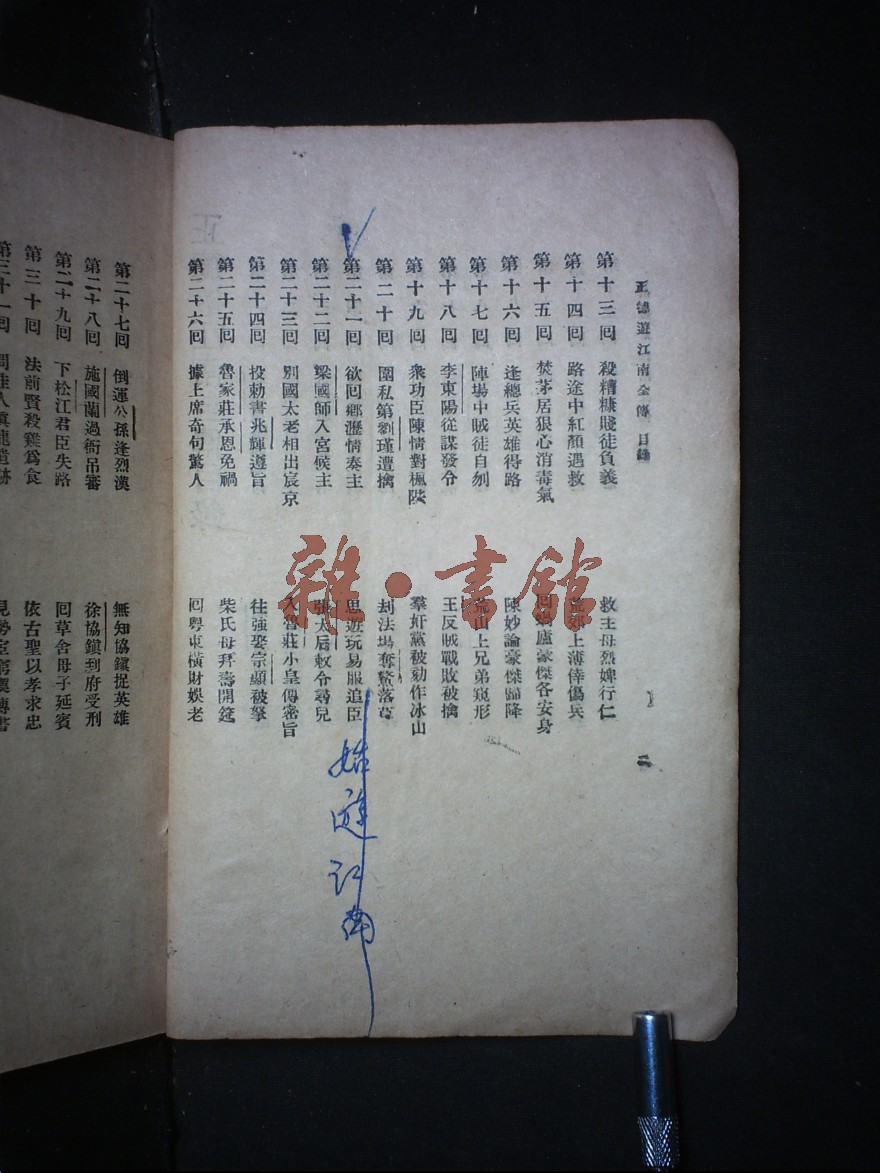 正德遊江南全傳 目錄
二
第十三回 殺糟糠賤徒負義 救主母烈婢行仁
第十四回 路途中紅顏遇救 荒郊上薄倖傷兵
第十五回 焚茅居狠心消毒氣 回 廬豪傑各安身
第十六回 逢總兵英雄得路 陳妙論豪傑歸降
第十七回 陣場中賊徒自刎 荒山上兄弟窺形
第十八回 李東陽從謀發令 王反賊戰敗被擒
第十九回 衆功臣陳情對楓陛 羣奸黨被劾作冰山
第二十回 圍私第劉瑾遭擒 刦法場奪鰲落草
第二十一回 欲回鄉瀝情奏主 思遊玩易服追臣
第二十二回 梁國師入宮候主 張太后敕令尋兒
第二十三回 別國太老相出宸京 入魯莊小皇傳密旨
第二十四回 投勅書兆輝遵旨 往強娶宗顯被拏
第二十五回 魯家莊承恩免禍 柴氏母拜壽開筵
第二十六回 據上席奇句驚人 回粵東橫財娛老
始遊江南
第二十七回 倒運公孫逢烈漢 無知協鎭捉英雄
第二十八回 施國蘭過衙吊審 徐協鎭到府受刑
第二十九回 下松江君臣失路 回草舍母子延賓
第三十回 法前賢殺雞爲食 依古聖以孝求忠
第三十一回
雜·書館